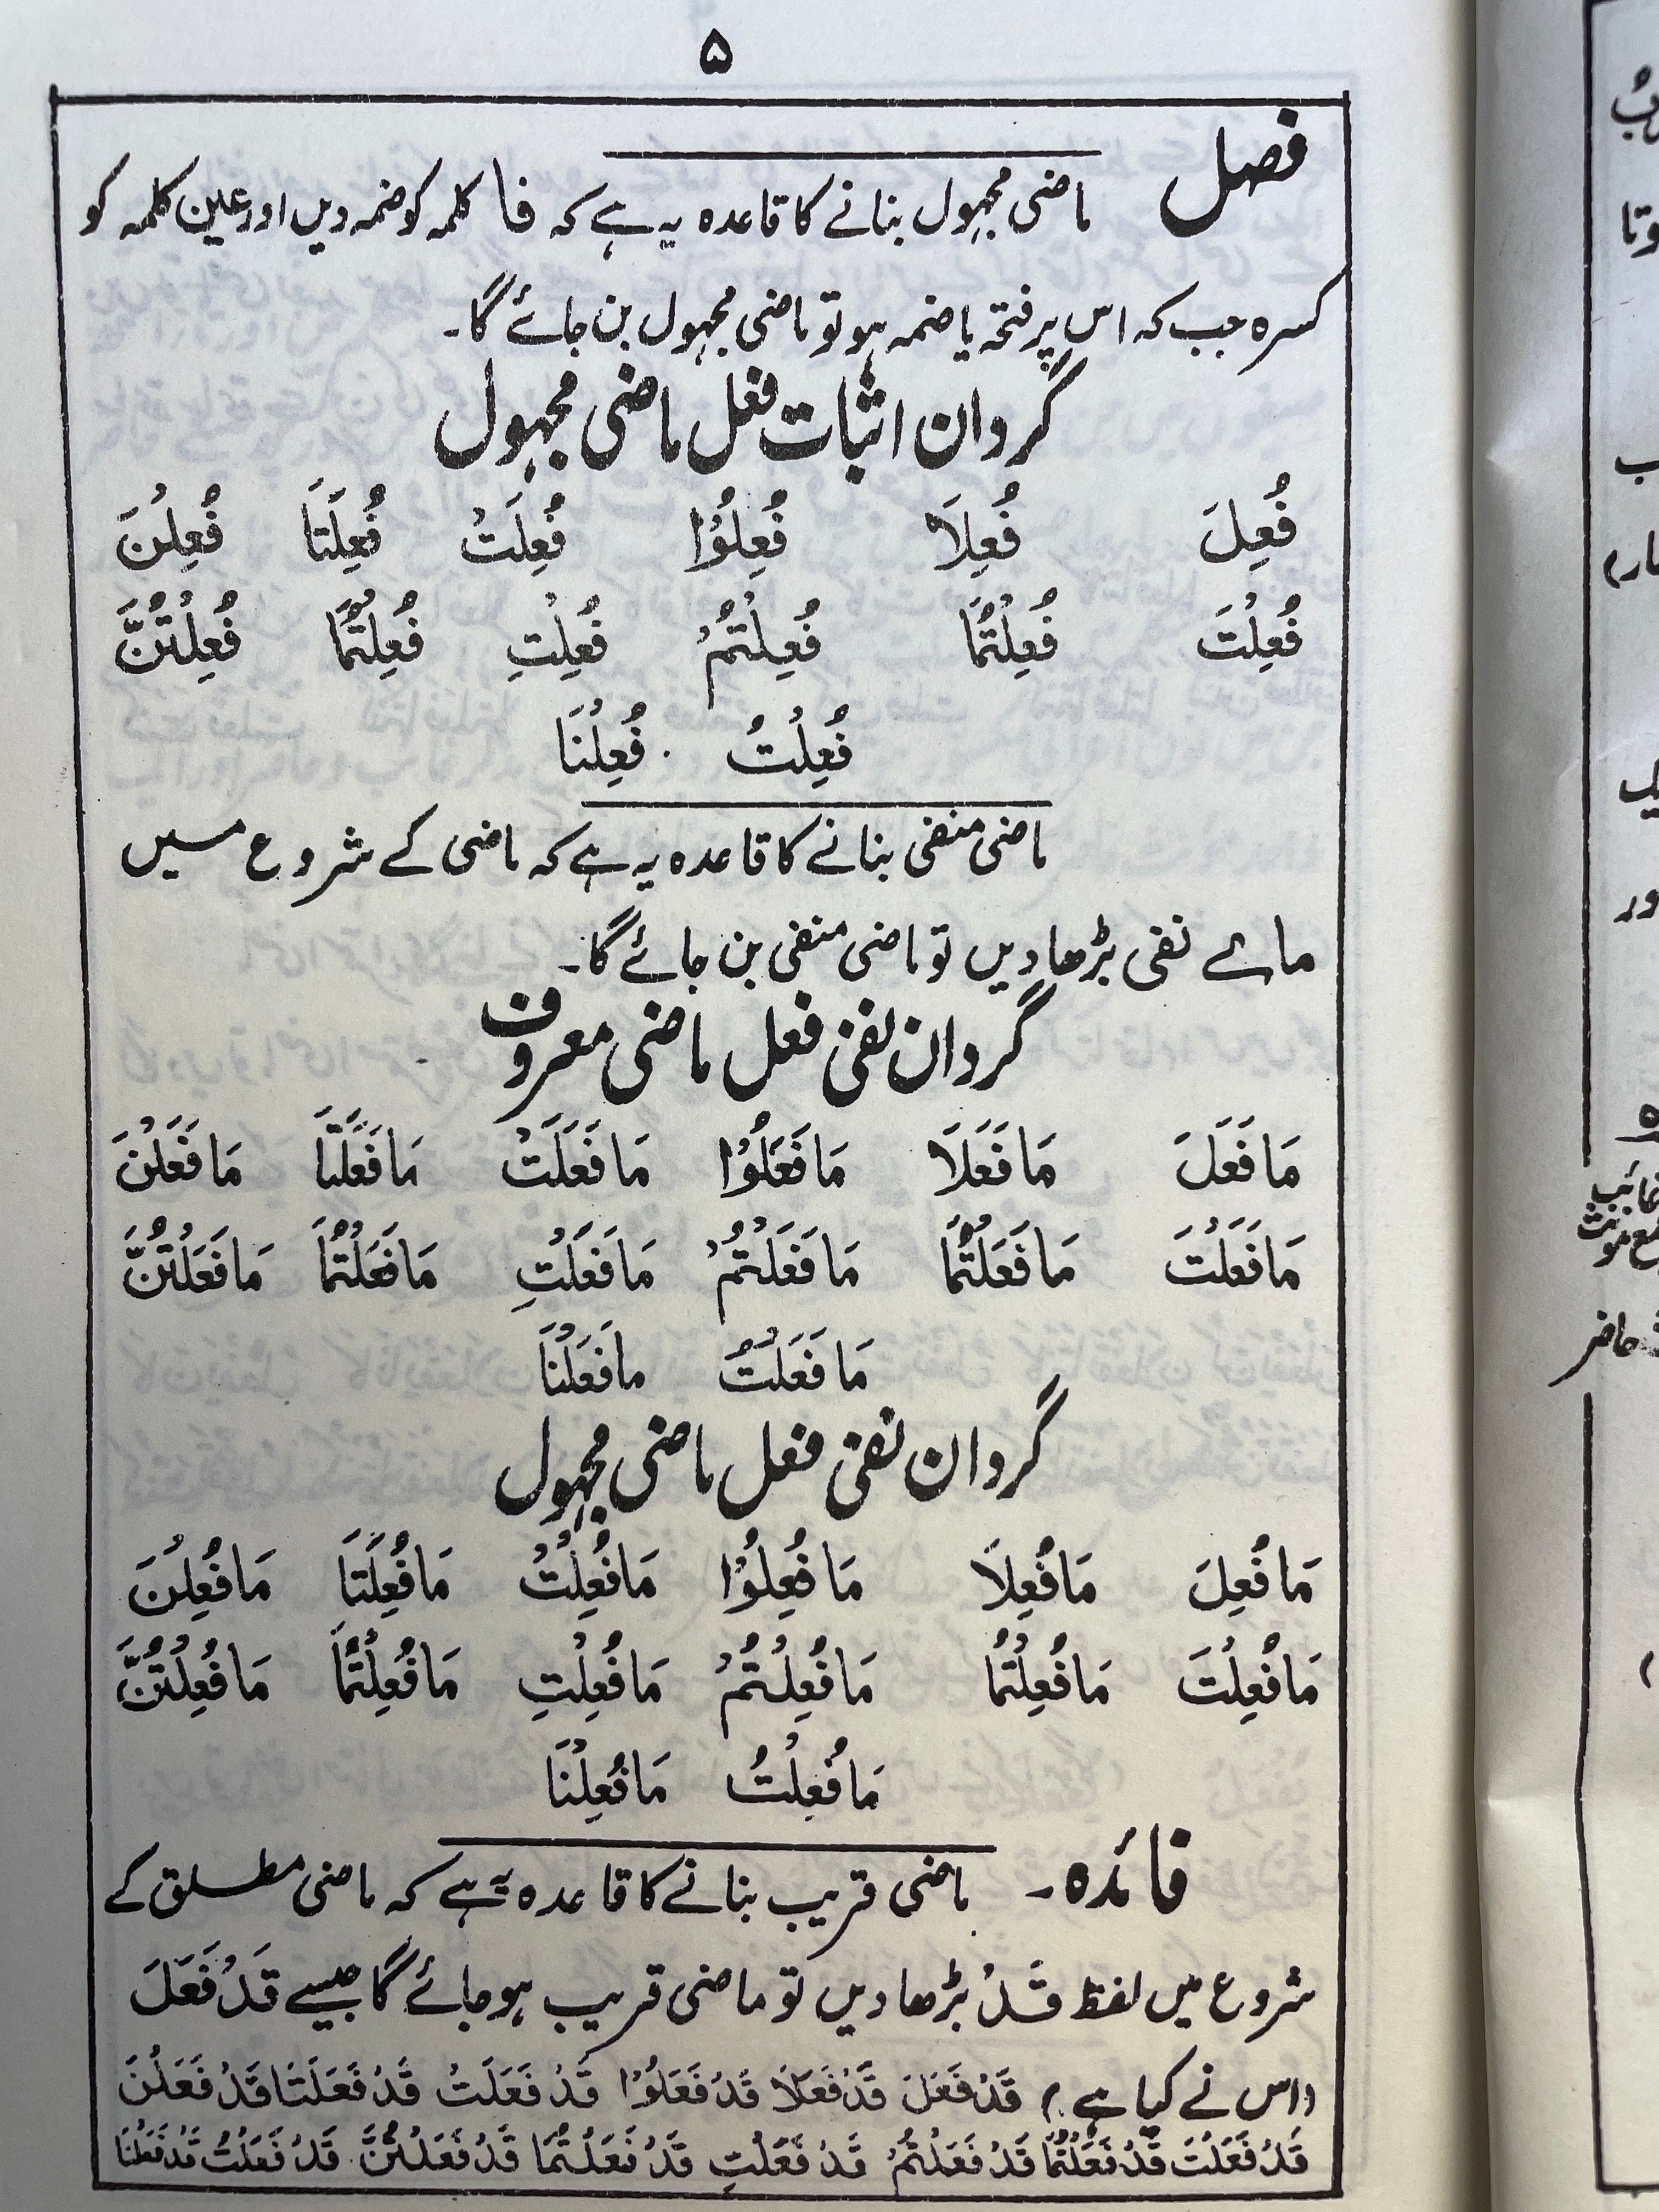 ۵
فصل ماضی مجہول بنانے کا قاعدہ یہ ہے کہ فا کلمہ کو ضمہ دیں اور عین کلمہ کو
کسرہ جب کہ اس پر فتحہ یا ضمہ ہو تو ماضی مجہول بن جائے گا۔
گردان اثبات فعل ماضی مجہول
فُعِلَ فُعِلَا فُعِلُوْا فُعِلَتْ فُعِلَتَا فُعِلْنَ
فُعِلْتَ فُعِلْتُمَا فُعِلْتُمْ فُعِلْتِ فُعِلْتُمَا فُعِلْتُنَّ
فُعِلْتُ فُعِلْنَا
ماضی منفی بنانے کا قاعدہ یہ ہے کہ ماضی کے شروع میں
مائے نفی بڑھا دیں تو ماضی منفی بن جائے گا۔
گردان نفی فعل ماضی معروف
مَا فَعَلَ مَا فَعَلَا مَا فَعَلُوْا مَا فَعَلَتْ مَا فَعَلَتَا مَا فَعَلْنَ
مَا فَعَلْتَ مَا فَعَلْتُمَا مَا فَعَلْتُمْ مَا فَعَلْتِ مَا فَعَلْتُمَا مَا فَعَلْتُنَّ
مَا فَعَلْتُ مافَعَلْنَا
گردان نفی فعل ماضی مجہول
مَا فُعِلَ مَا فُعِلَا مَا فُعِلُوْا مَا فُعِلَتْ مَا فُعِلَتَا مَا فُعِلْنَ
مَا فُعِلْتَ مَا فُعِلْتُمَا مَا فُعِلْتُمْ مَا فُعِلْتِ مَا فُعِلْتُمَا مَا فُعِلْتُنَّ
مَا فُعِلْتُ مَا فُعِلْنَا
فائدہ۔ ماضی قریب بنانے کا قاعدہ یہ ہے کہ ماضی مطلق کے
شروع میں لفظ قَدْ بڑھا دیں تو ماضی قریب ہو جائے گا جیسے قَدْ فَعَلَ
(اس نے کیا ہے) قَدْ فَعَلَ قَدْ فَعَلَا قَدْ فَعَلُوْا قَدْ فَعَلَتْ قَدْ فَعَلَتَا قَدْ فَعَلْنَ
قَدْ فَعَلْتَ قَدْ فَعَلْتُمَا قَدْ فَعَلْتُمْ قَدْ فَعَلْتِ قَدْ فَعَلْتُمَا قَدْ فَعَلْتُنَّ قَدْ فَعَلْتُ قَدْ فَعَلْنَا